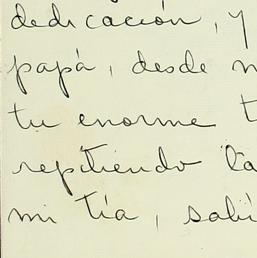 dedicación, y
papá, desde
tu enorme
repitiendo
mi tía,